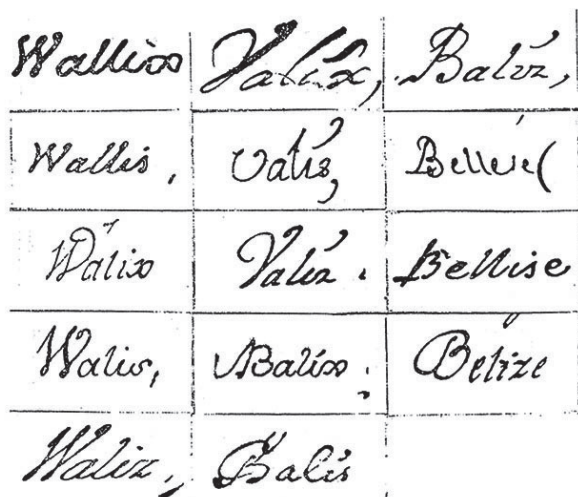 Wallix Valix, Baliz,
Wallis, Valis,
Walix Valiz. Bellise
Walis, Balix, Belize
Waliz, Balis